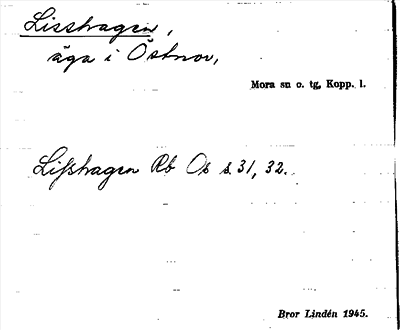 Lisshagen,
äga i Östnor,
Mora sn o. tg, Kopp. l.
Lisshagen Rb Os s. 31, 32.
Bror Lindén 1945.